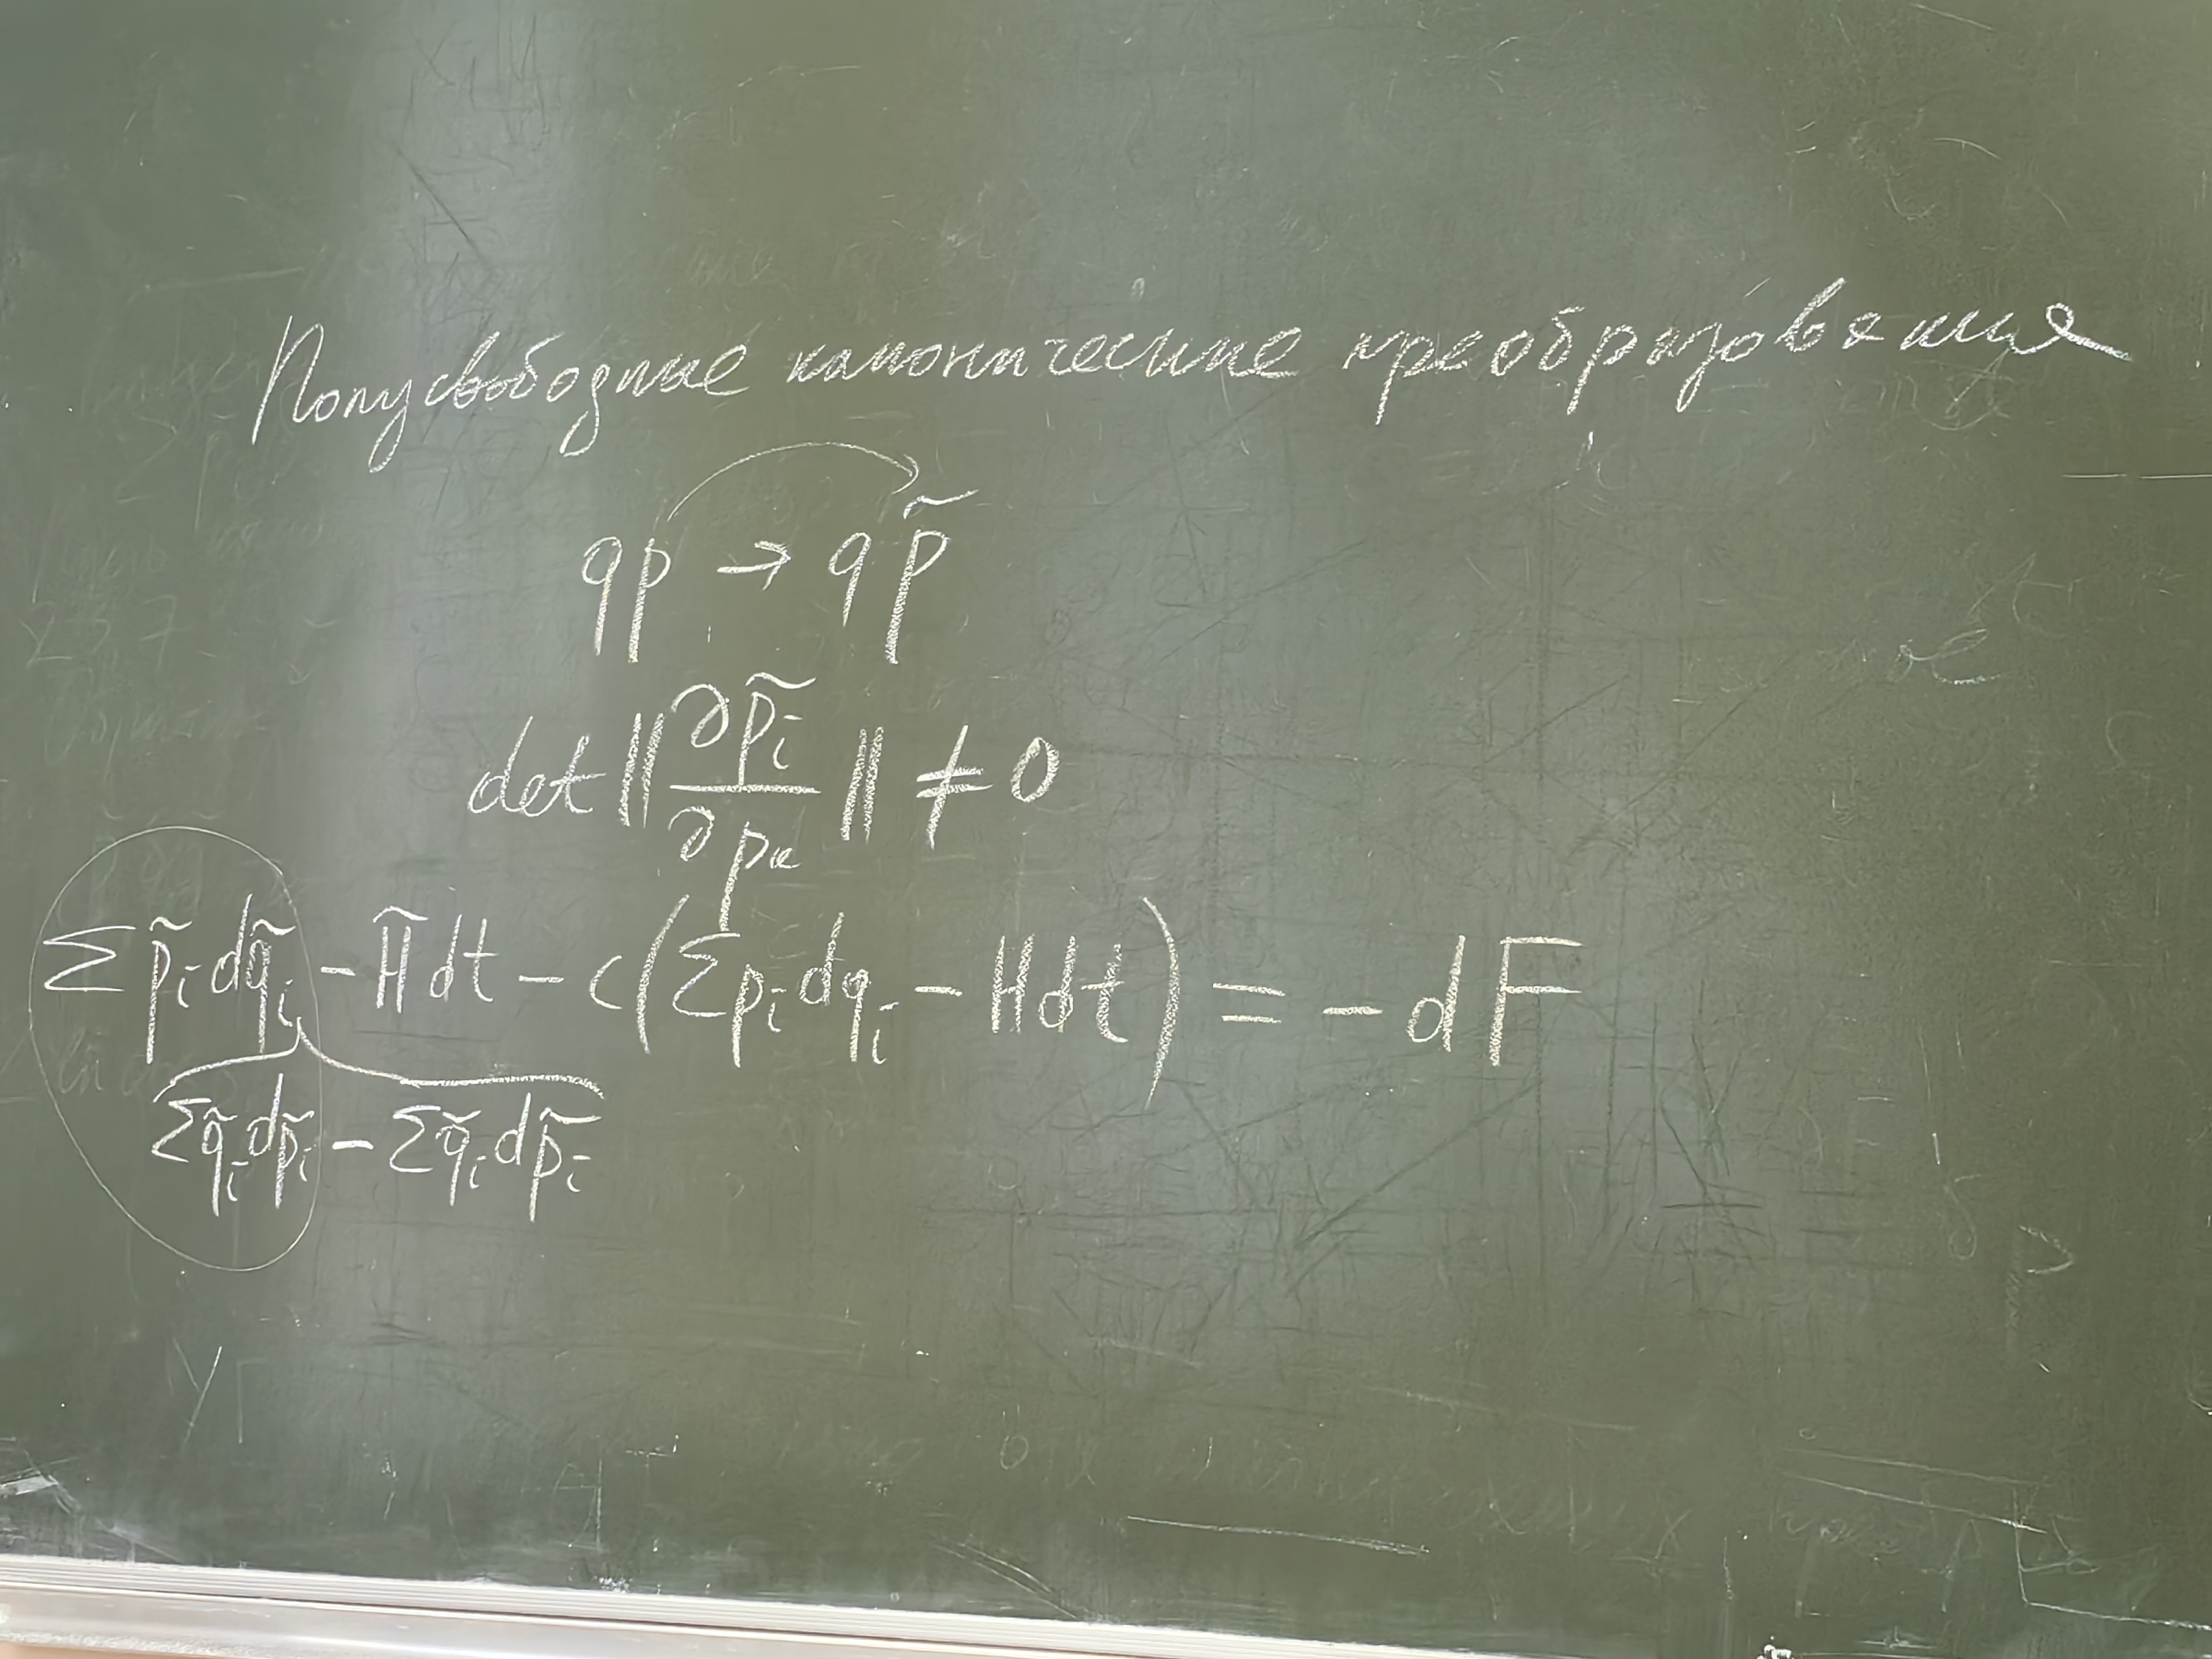 Полусвободные канонические преобразования
qp → qp̃
det ‖∂p̃ᵢ/∂pₖ‖ ≠ 0
Σp̃ᵢdq̃ᵢ - H̃dt - c(Σpᵢdqᵢ - Hdt) = -dF
Σq̃ᵢdp̃ᵢ - Σq̃ᵢdp̃ᵢ